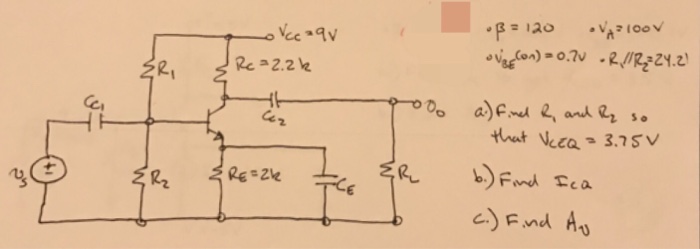 Vcc=9V
R1
Rc=2.2k
Cc1
Cc2
Vo
Vs
R2
RE=2k
CE
RL
•β=120 •VA=100V
•VBE(on)=0.7V •R1//R2=24.2
a.) Find R1 and R2 so
that VCEQ = 3.75V
b.) Find ICQ
c.) Find Av